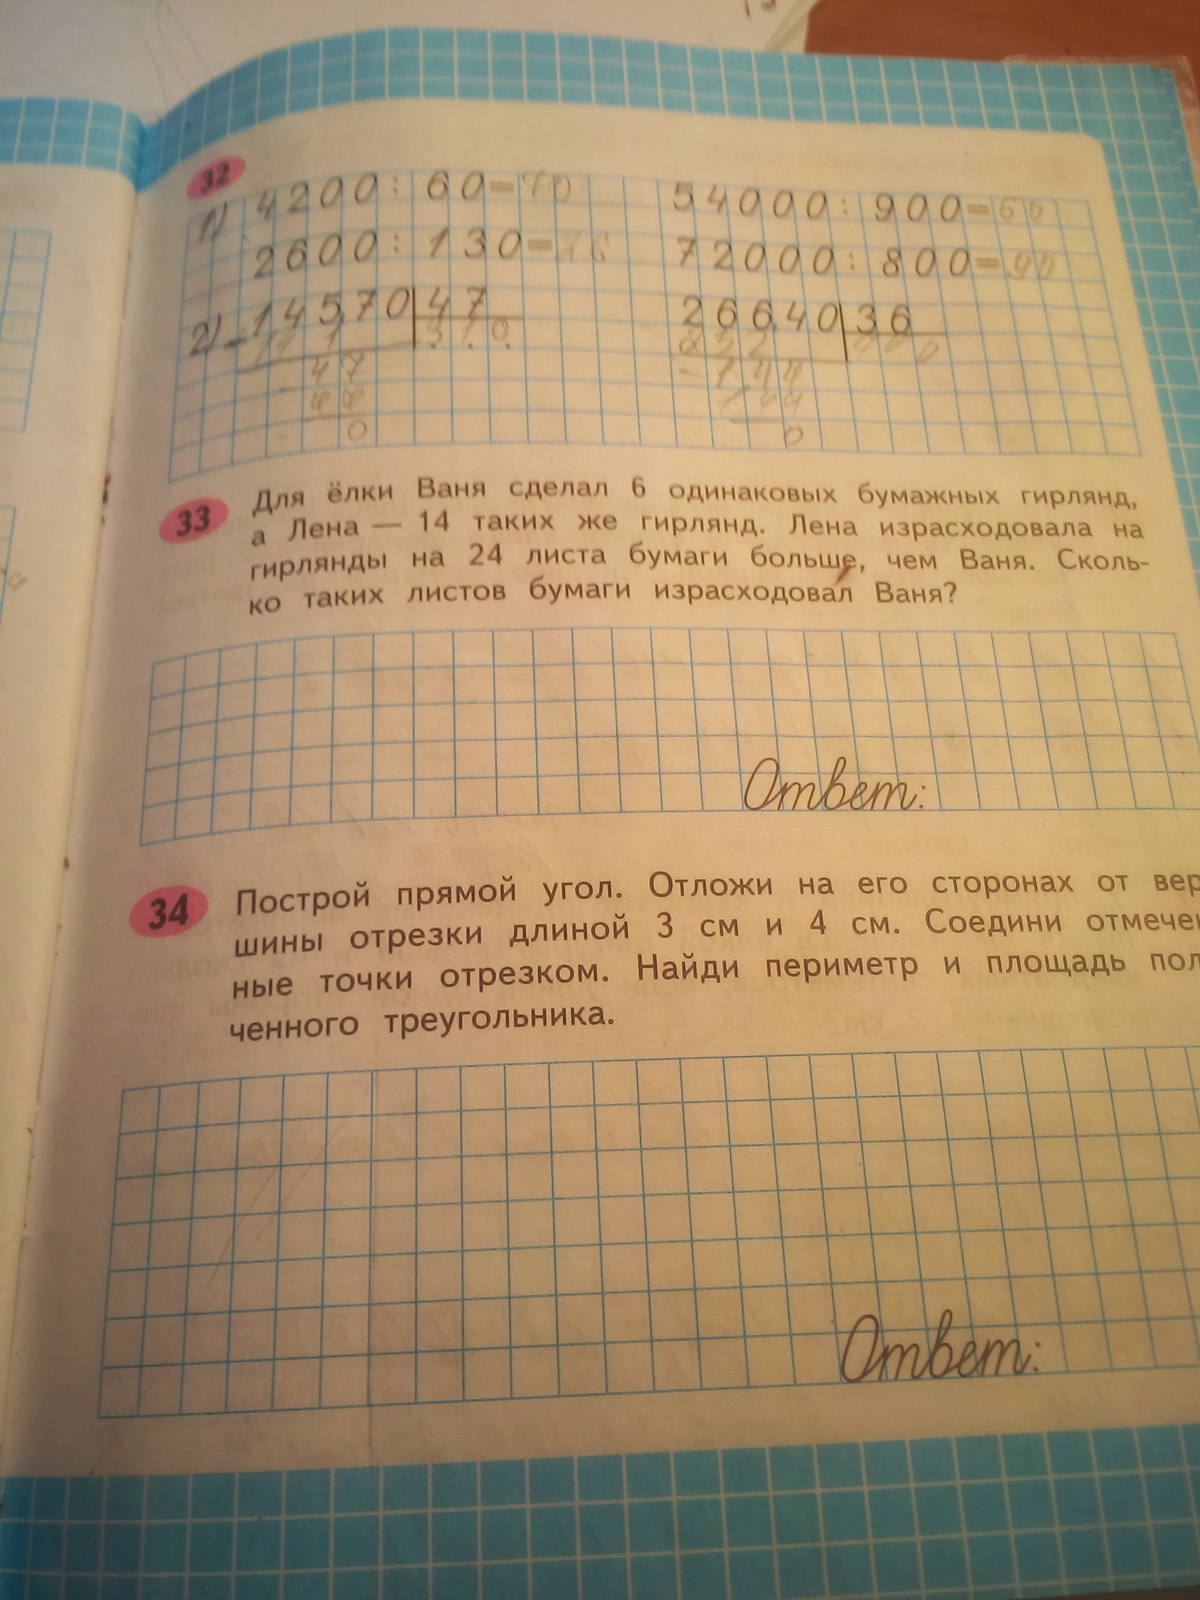 32
1) 4200 : 60 = 70 54000 : 900 = 60
2600 : 130 = 72000 : 800 = 90
2) 14570 47 26640 36
310
47 144
0 144
0
33 Для ёлки Ваня сделал 6 одинаковых бумажных гирлянд,
а Лена — 14 таких же гирлянд. Лена израсходовала на
гирлянды на 24 листа бумаги больше, чем Ваня. Сколь-
ко таких листов бумаги израсходовал Ваня?
Ответ:
34 Построй прямой угол. Отложи на его сторонах от вер
шины отрезки длиной 3 см и 4 см. Соедини отмечен
ные точки отрезком. Найди периметр и площадь пол
ченного треугольника.
Ответ: